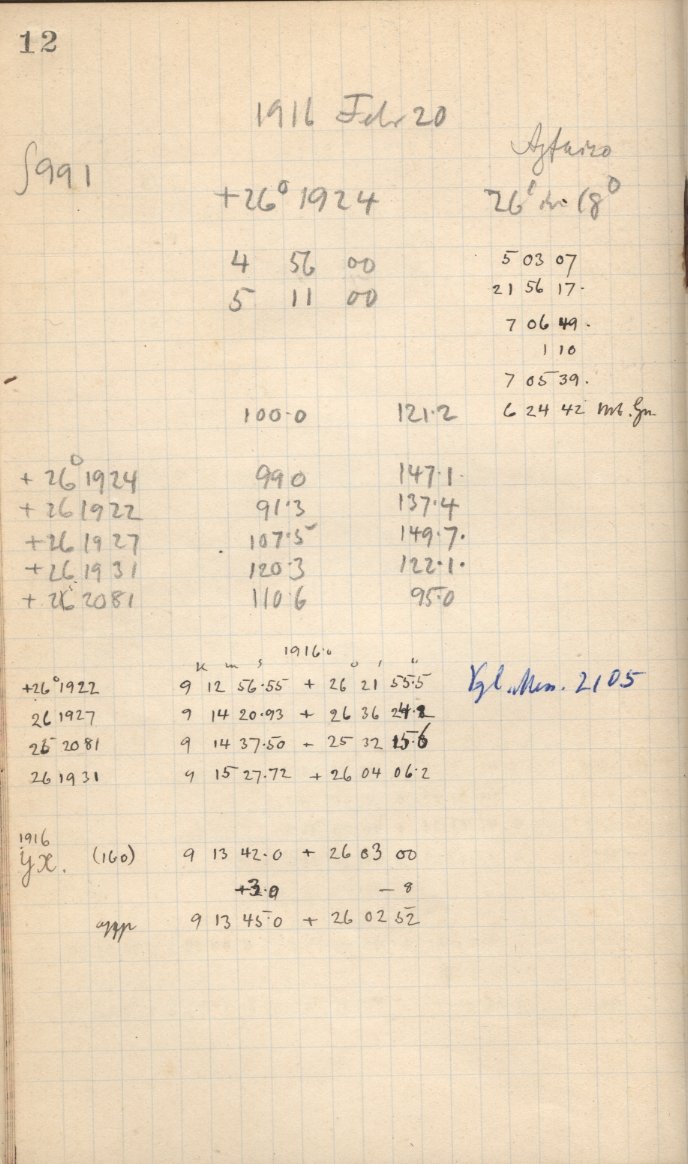 12
1916 Febr 20
991
+26° 1924
26° 18°
4 56 00
5 11 00
5 03 07
21 56 17.
7 06 49.
1 10
7 05 39.
6 24 42
100.0 121.2
+26° 1924 99.0 147.1
+26 1922 91.3 137.4
+26 1927 107.5 149.7.
+26 1931 120.3 122.1.
+26 2081 110.6 95.0
1916.0
h m s ° ' "
+26° 1922 9 12 56.55 + 26 21 55.5
26 1927 9 14 20.93 + 26 36 24.2
25 2081 9 14 37.50 + 25 32 15.6
26 1931 9 15 27.72 + 26 04 06.2
2105
1916
(160) 9 13 42.0 + 26 03 00
+3.0 - 8
app 9 13 45.0 + 26 02 52